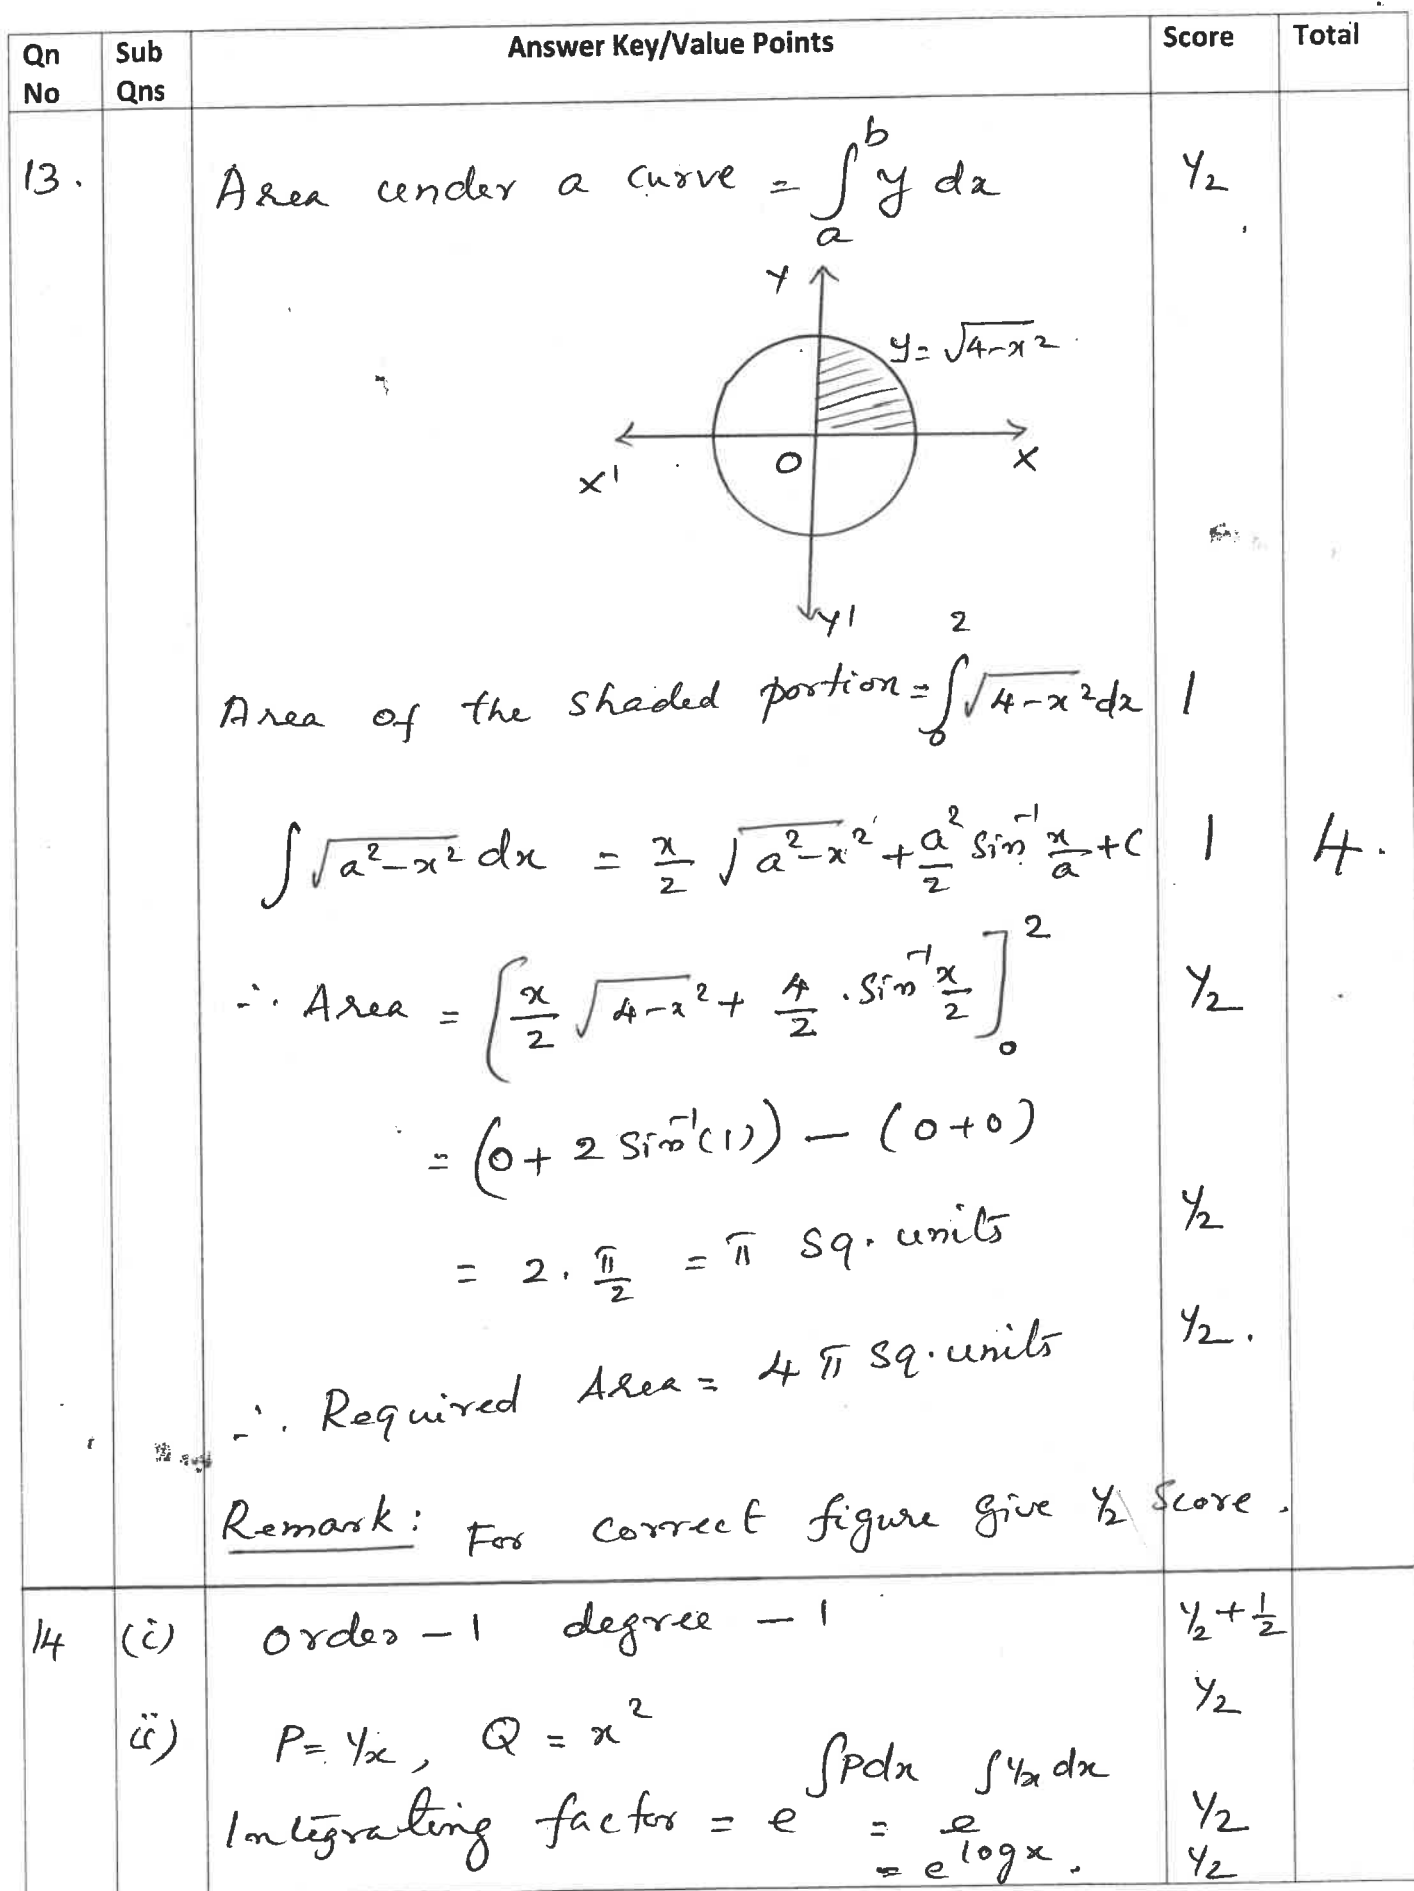 Qn No Sub Qns Answer Key/Value Points Score Total
13. Area under a curve = ∫_a^b y dx 1/2
Y
y = √(4-x²)
X' O X
Y'
Area of the shaded portion = ∫_0^2 √(4-x²) dx 1
∫ √(a²-x²) dx = x/2 √(a²-x²) + a²/2 Sin⁻¹ x/a + C 1 4.
∴ Area = [x/2 √(4-x²) + 4/2 . Sin⁻¹ x/2]_0^2 1/2
= (0 + 2 Sin⁻¹(1)) - (0+0)
= 2 . π/2 = π sq. units 1/2
∴ Required Area = 4π sq. units 1/2.
Remark: For correct figure give 1/2 Score.
14 (i) order - 1 degree - 1 1/2 + 1/2
ii) P = 1/x, Q = x² 1/2
Integrating factor = e^∫Pdx = e^∫1/x dx 1/2
= e^logx. 1/2